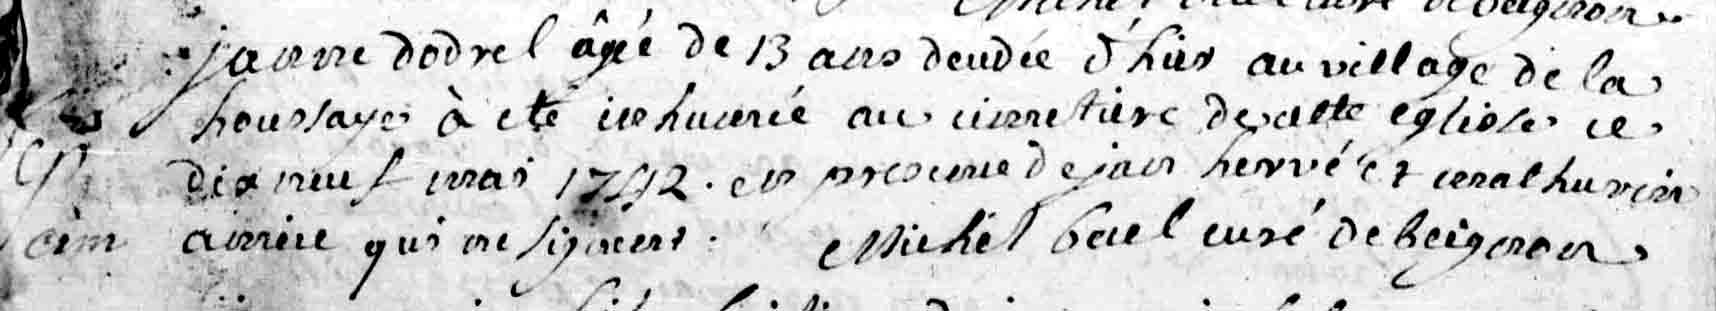 Michel curé de beignon
janne dodrel âgéé de 13 ans decedée d'hier au village de la
houssaye à eté inhumée au cimetiere de cette eglise ce
dix neuf mai 1742. en presence de jan hervé et mathurin
qui ne signent. Michel bael curé de beignon
cim